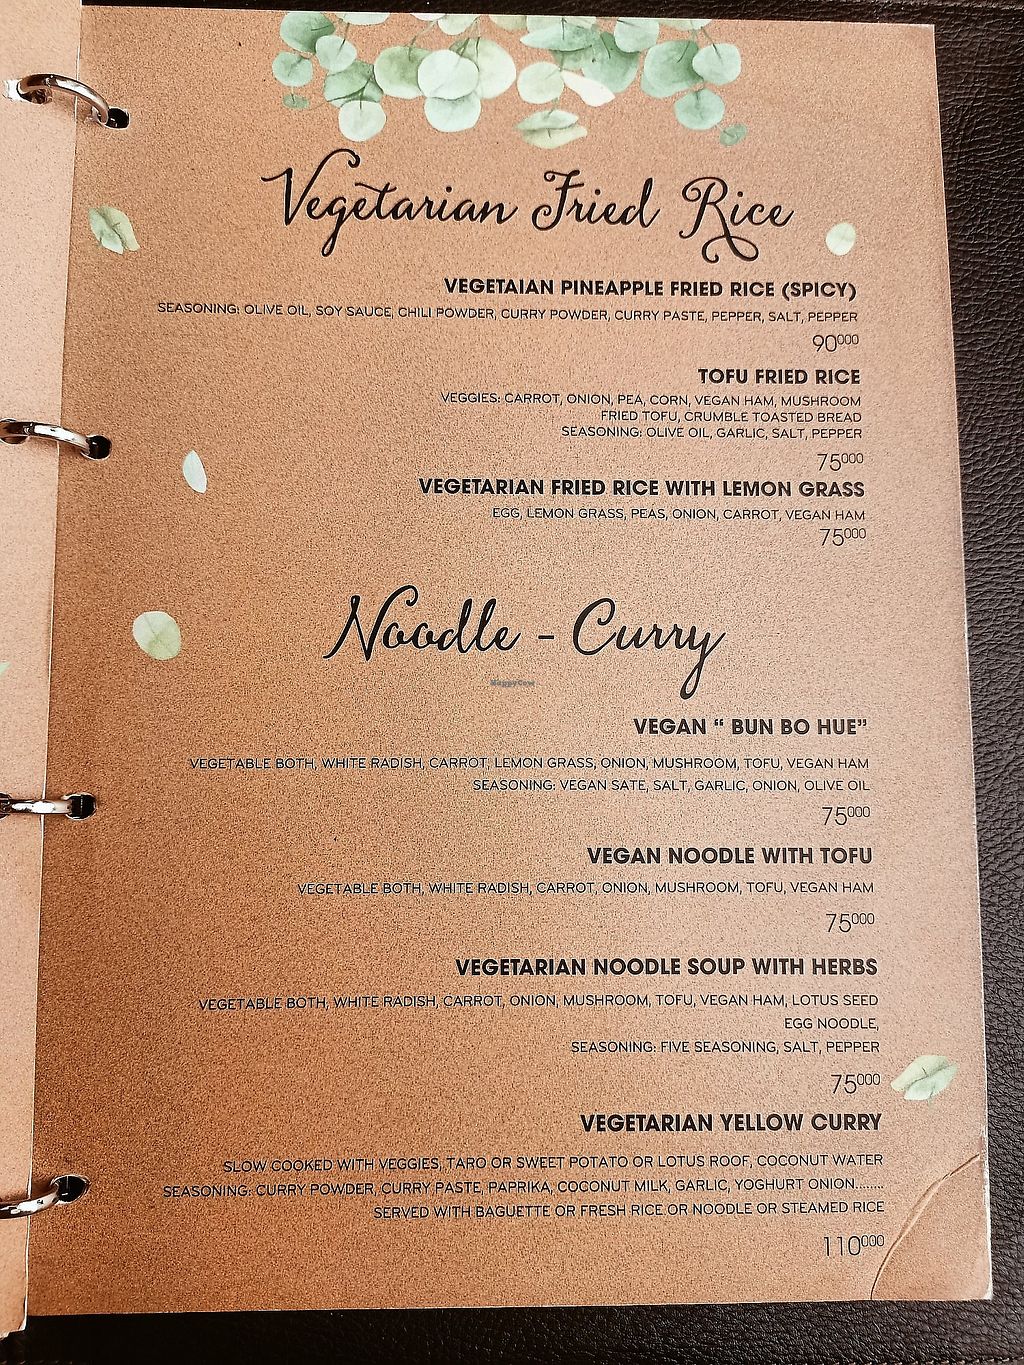 Vegetarian Fried Rice
VEGETAIAN PINEAPPLE FRIED RICE (SPICY)
SEASONING: OLIVE OIL, SOY SAUCE, CHILI POWDER, CURRY POWDER, CURRY PASTE, PEPPER, SALT, PEPPER
90000
TOFU FRIED RICE
VEGGIES: CARROT, ONION, PEA, CORN, VEGAN HAM, MUSHROOM
FRIED TOFU, CRUMBLE TOASTED BREAD
SEASONING: OLIVE OIL, GARLIC, SALT, PEPPER
75000
VEGETARIAN FRIED RICE WITH LEMON GRASS
EGG, LEMON GRASS, PEAS, ONION, CARROT, VEGAN HAM
75000
Noodle - Curry
HappyCow
VEGAN “ BUN BO HUE”
VEGETABLE BOTH, WHITE RADISH, CARROT, LEMON GRASS, ONION, MUSHROOM, TOFU, VEGAN HAM
SEASONING: VEGAN SATE, SALT, GARLIC, ONION, OLIVE OIL
75000
VEGAN NOODLE WITH TOFU
VEGETABLE BOTH, WHITE RADISH, CARROT, ONION, MUSHROOM, TOFU, VEGAN HAM
75000
VEGETARIAN NOODLE SOUP WITH HERBS
VEGETABLE BOTH, WHITE RADISH, CARROT, ONION, MUSHROOM, TOFU, VEGAN HAM, LOTUS SEED
EGG NOODLE,
SEASONING: FIVE SEASONING, SALT, PEPPER
75000
VEGETARIAN YELLOW CURRY
SLOW COOKED WITH VEGGIES, TARO OR SWEET POTATO OR LOTUS ROOF, COCONUT WATER
SEASONING: CURRY POWDER, CURRY PASTE, PAPRIKA, COCONUT MILK, GARLIC, YOGHURT ONION........
SERVED WITH BAGUETTE OR FRESH RICE OR NOODLE OR STEAMED RICE
110000